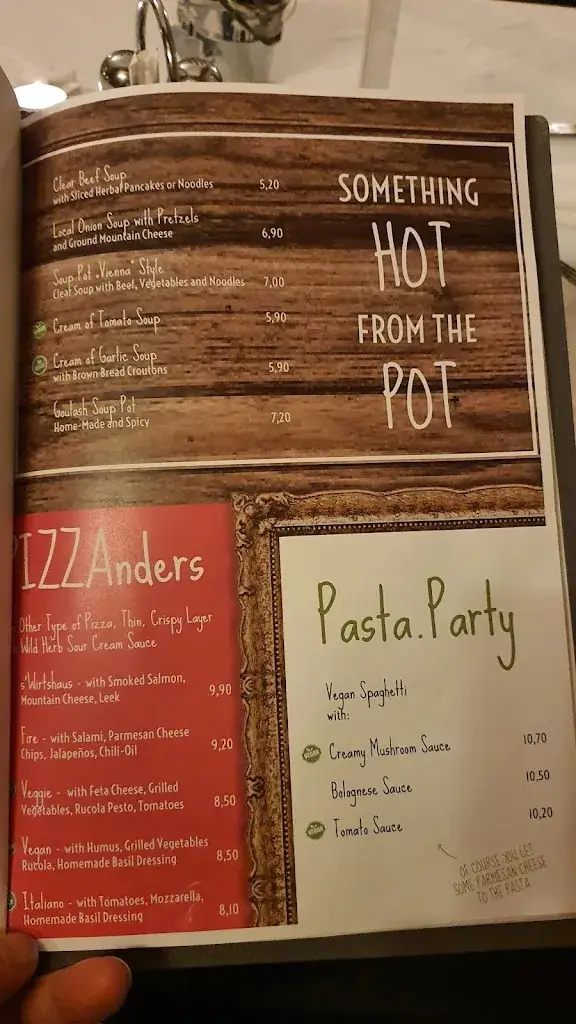 Clear Beef Soup
with Sliced Herbal Pancakes or Noodles 5,20
Local Onion Soup with Pretzels
and Ground Mountain Cheese 6,90
Soup Pot „Vienna" Style
Clear Soup with Beef, Vegetables and Noodles 7,00
Cream of Tomato Soup 5,90
Cream of Garlic Soup
with Brown Bread Croutons 5,90
Goulash Soup Pot
Home-Made and Spicy 7,20
SOMETHING
HOT
FROM THE
POT
IZZAnders
Other Type of Pizza, Thin, Crispy Layer
Wild Herb Sour Cream Sauce
s'Wirtshaus - with Smoked Salmon,
Mountain Cheese, Leek 9,90
Fire - with Salami, Parmesan Cheese
Chips, Jalapeños, Chili-Oil 9,20
Veggie - with Feta Cheese, Grilled
Vegetables, Rucola Pesto, Tomatoes 8,50
Vegan - with Humus, Grilled Vegetables
Rucola, Homemade Basil Dressing 8,50
Italiano - with Tomatoes, Mozzarella,
Homemade Basil Dressing 8,10
Pasta.Party
Vegan Spaghetti
with:
VEGAN Creamy Mushroom Sauce 10,70
Bolognese Sauce 10,50
VEGAN Tomato Sauce 10,20
OF COURSE YOU GET
SOME PARMESAN CHEESE
TO THE PASTA